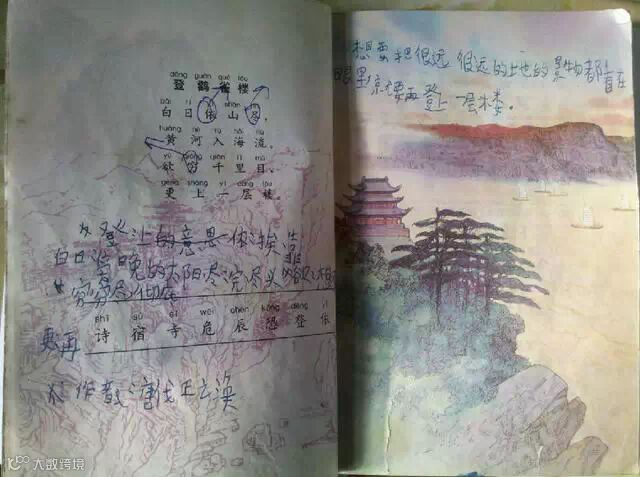 dēng guàn què lóu
登鹳雀楼
bái rì yī shān jìn
白日依山尽，
huáng hé rù hǎi liú
黄河入海流。
yù qióng qiān lǐ mù
欲穷千里目，
gèng shàng yì céng lóu
更上一层楼。
登:登上的意思 依:挨靠
白日:傍晚的太阳 尽:完尽头 欲:想
穷:穷尽彻底
shī sù sì wēi chén kǒng dēng yī
诗 宿 寺 危 辰 恐 登 依
更:再
作者:唐代王之涣
想要把很远很远的土也的景物都看在
眼里京尤要再登上一层木娄。
大数跨境